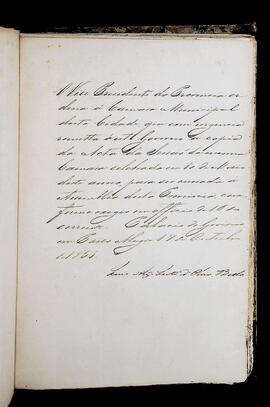 O Vice Presidente da Provincia or
dena á Camara Municipal
desta Cidade que com urgencia
remetta a este Governo a copia
da Acta da Sessão da mesma
Camara celebrada em 10 de Maio
deste anno, para ser enviada á
Assembléa desta Provincia, con
forme exigio em officio de 16 do
corrente. Palacio do Governo
em Porto Alegre 17 de Outubro
de 1851
Luis